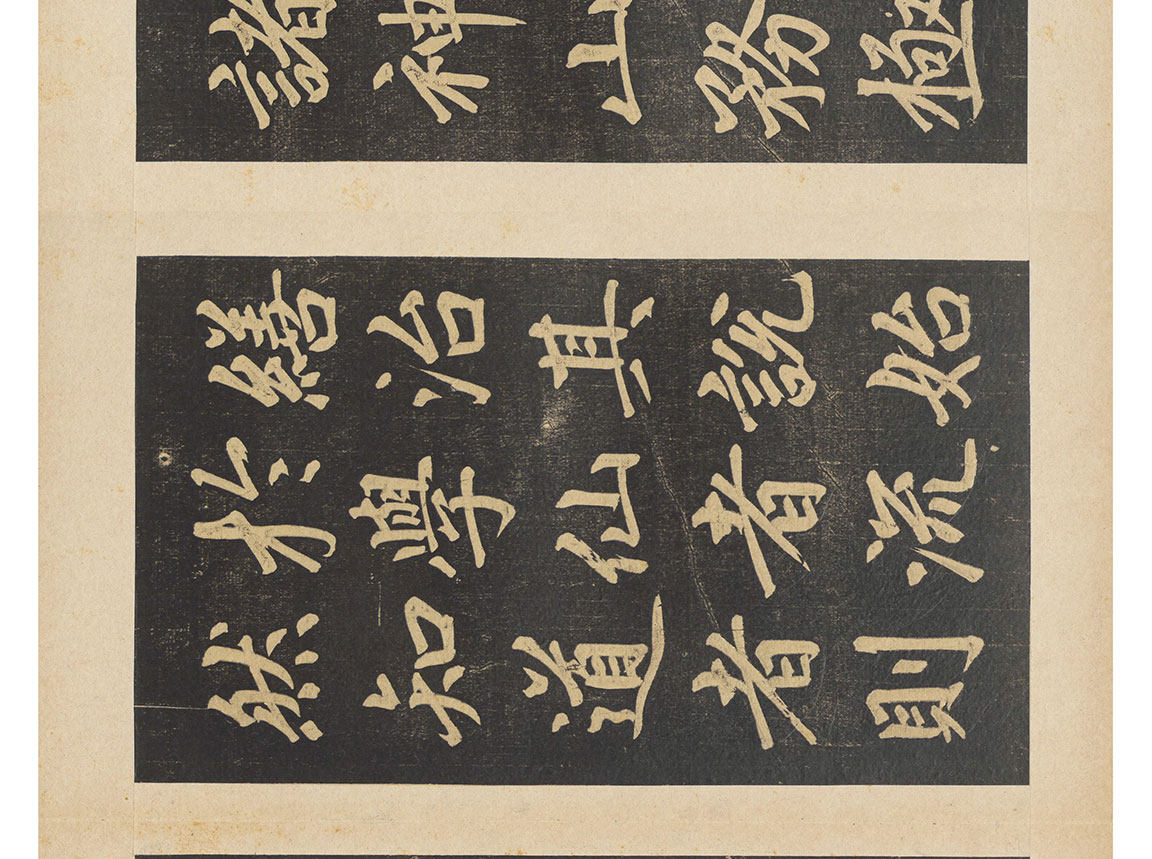 諸神山務極
繕治其說始
於學仙者流
然知道者則